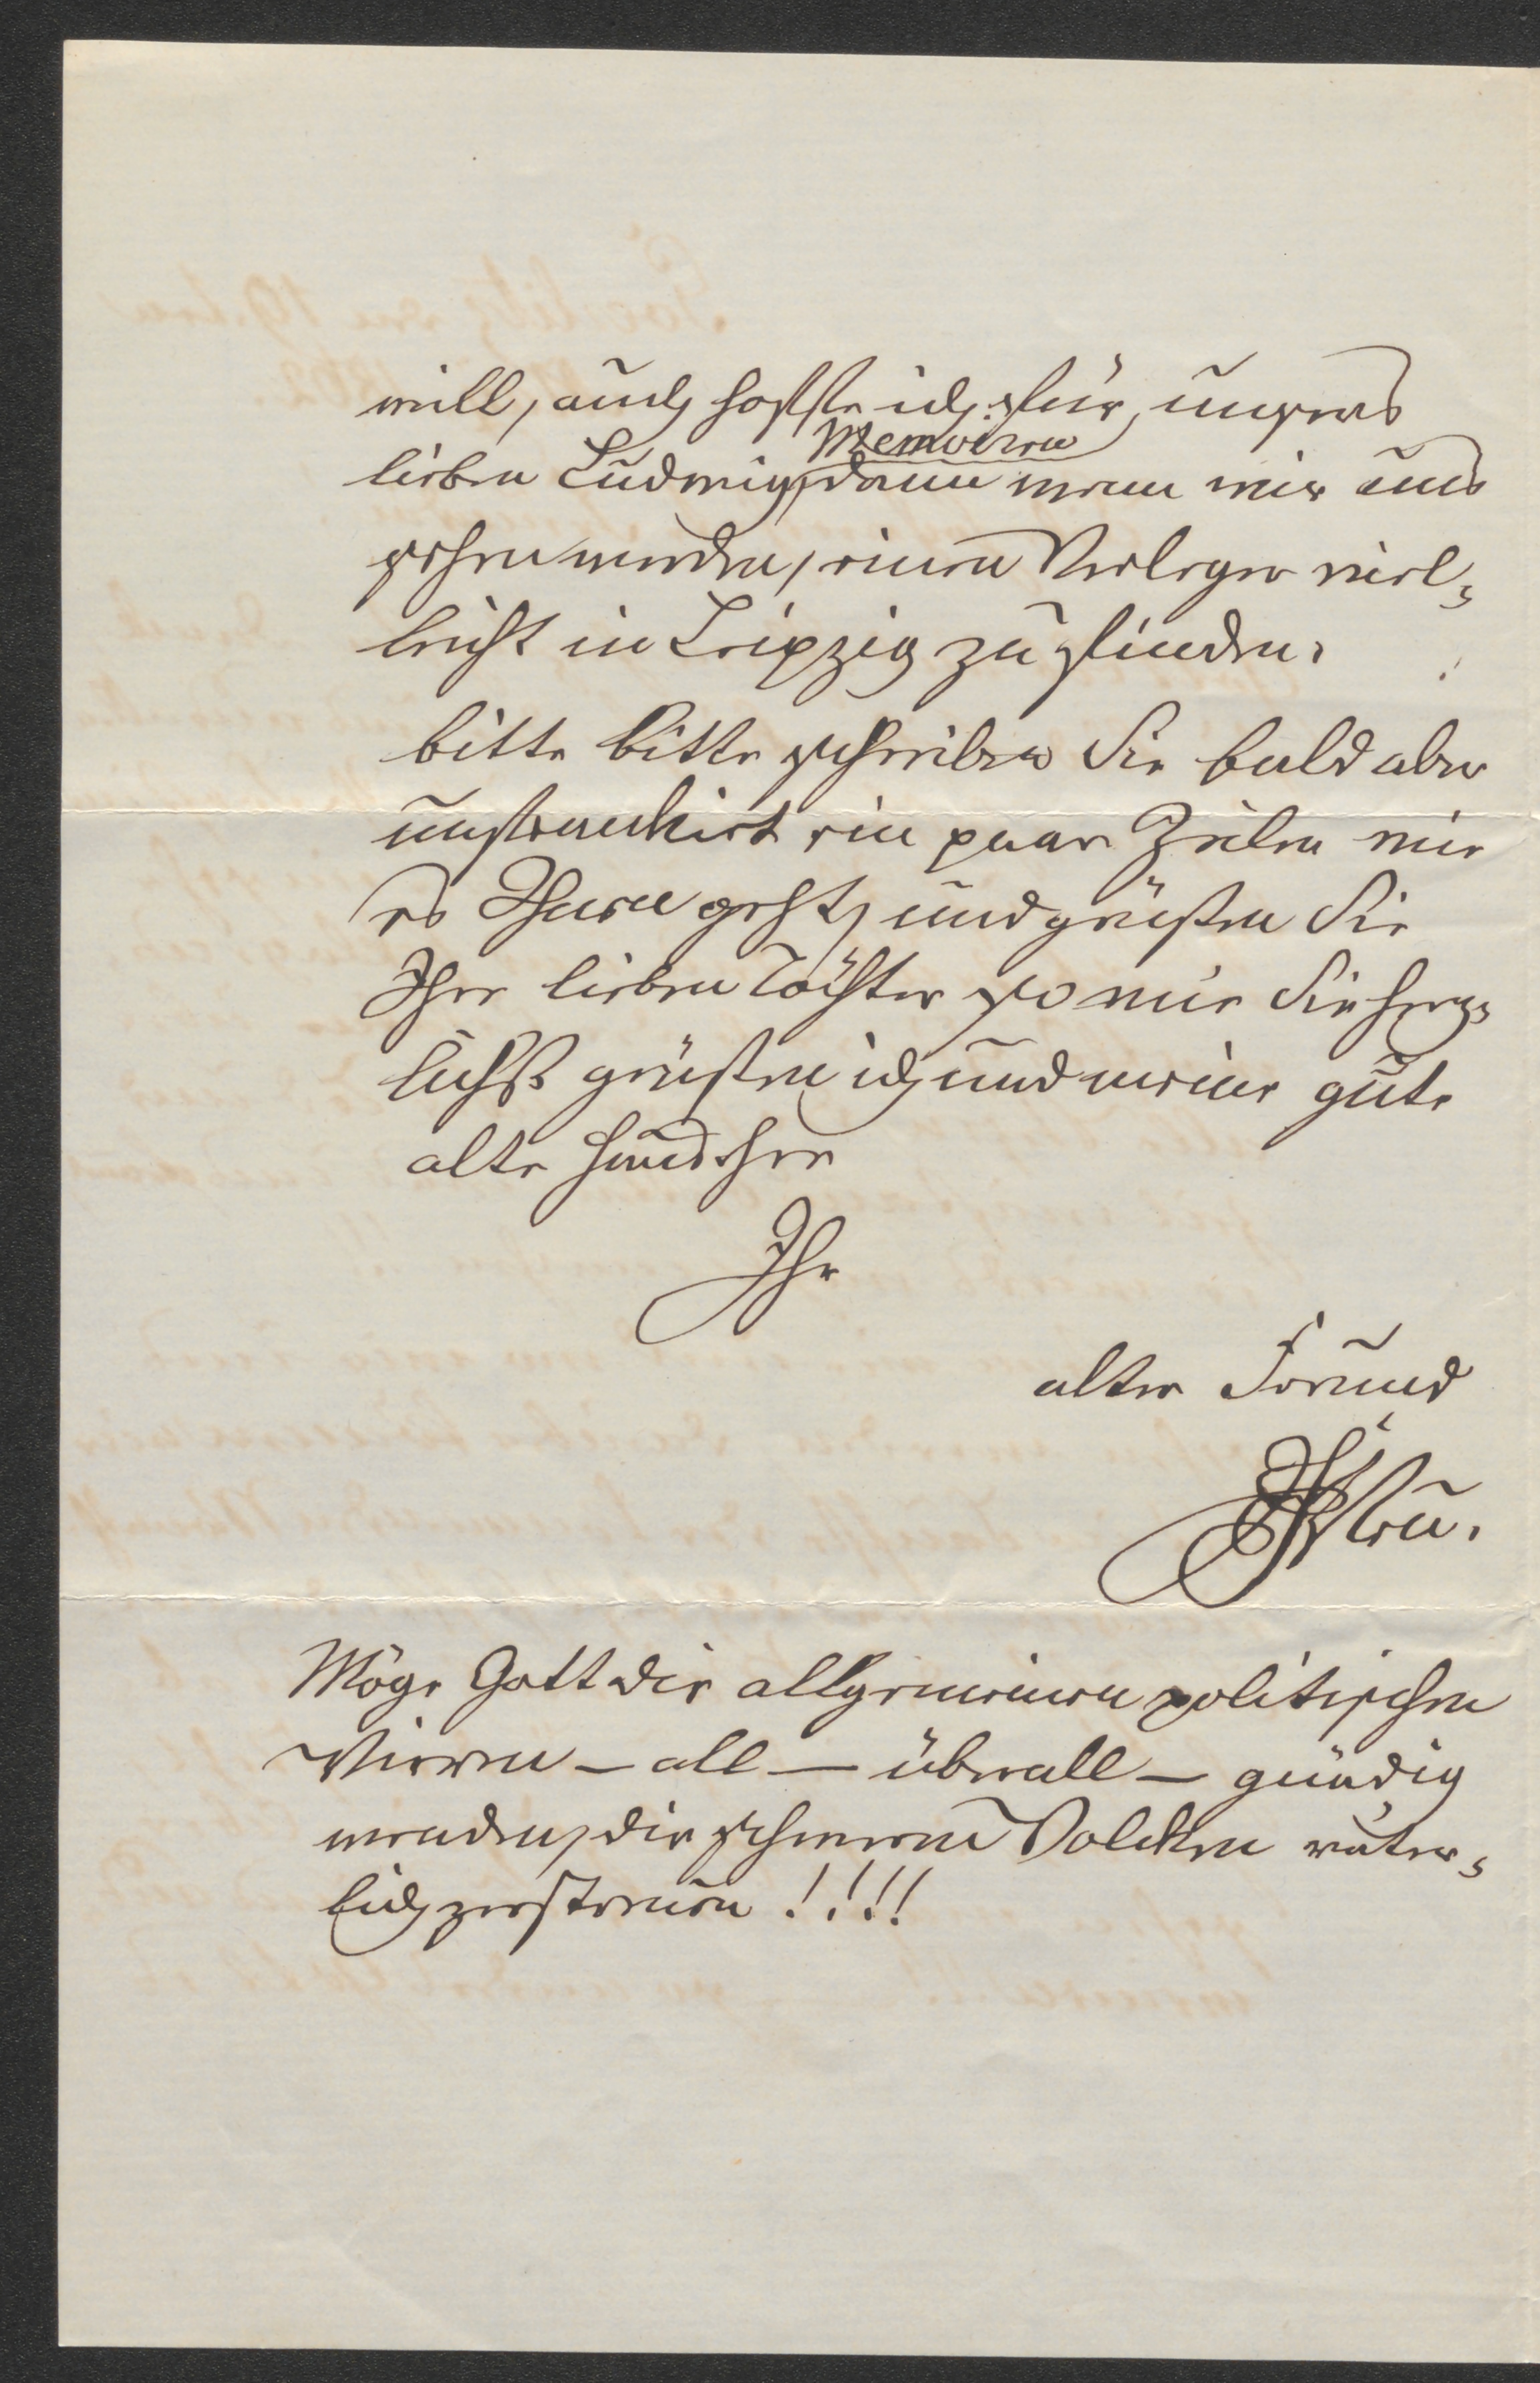 will, auch hoffte ich für unsres
lieben Ludwigs Memoiren dann wenn wir uns
sehen werden, einen Verleger viel-
leicht in Leipzig zu finden.
bitte bitte schreiben Sie bald aber
unfrankirt ein paar Zeilen wie
es Ihnen geht, und grüßen Sie
Ihre lieben Töchter so wie Sie herz-
lichst grüßen ich und meine gute
alte
Ihr
alter Freund
Möge Gott die allgemeinen politischen
Wirren – all – überall – gnädig
wenden, die schweren Wolcken väter-
lich zerstreuen !!!!